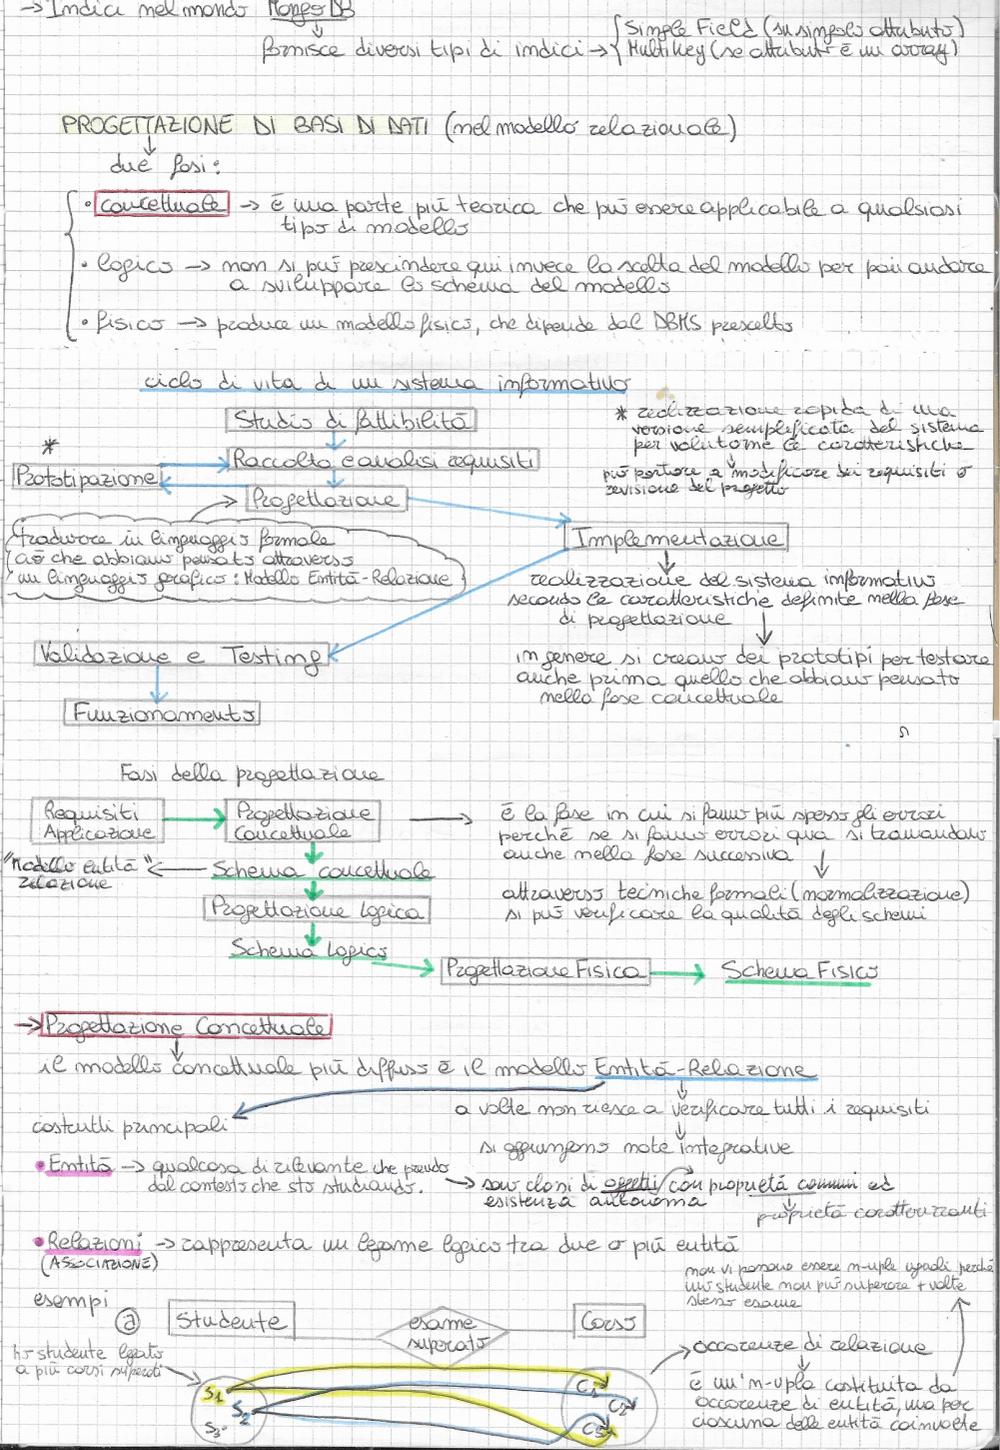 → Indici nel mondo MongoDB
fornisce diversi tipi di indici → { Simple Field (su singolo attributo)
Multikey (se attributo è un array)
PROGETTAZIONE DI BASI DI DATI (nel modello relazionale)
due fasi:
• concettuale → è una parte più teorica che può essere applicabile a qualsiasi
tipo di modello
• logico → non si può prescindere qui invece la scelta del modello per poi andare
a sviluppare lo schema del modello
• fisico → produce un modello fisico, che dipende dal DBMS prescelto
ciclo di vita di un sistema informativo
Studio di fattibilità
* realizzazione rapida di una
versione semplificata del sistema
per valutarne le caratteristiche
può portare a modificare dei requisiti o
revisione del progetto
*
Raccolta e analisi requisiti
Prototipazione
Progettazione
tradurre in linguaggio formale
ciò che abbiamo pensato attraverso
un linguaggio grafico: Modello Entità-Relazione
Implementazione
realizzazione del sistema informativo
secondo le caratteristiche definite nella fase
di progettazione
Validazione e Testing
in genere si creano dei prototipi per testare
anche prima quello che abbiamo pensato
nella fase concettuale
Funzionamento
Fasi della progettazione
Requisiti
Applicazione
Progettazione
Concettuale
è la fase in cui si fanno più spesso gli errori
perché se si fanno errori qua si tramandano
anche nella fase successiva
"Modello entità
relazione"
Schema concettuale
Progettazione Logica
attraverso tecniche formali (normalizzazione)
si può verificare la qualità degli schemi
Schema Logico
Progettazione Fisica
Schema Fisico
→ Progettazione Concettuale
il modello concettuale più diffuso è il modello Entità-Relazione
a volte non riesce a verificare tutti i requisiti
costrutti principali
si aggiungono note integrative
• Entità → qualcosa di rilevante che prendo
dal contesto che sto studiando.
→ sono classi di oggetti con proprietà comuni ed
esistenza autonoma
proprietà caratterizzanti
• Relazioni → rappresenta un legame logico tra due o più entità
(ASSOCIAZIONE)
non vi possono essere n-uple uguali perché
uno studente non può superare + volte
stesso esame
esempi
a
Studente
esame
superato
Corso
lo studente legato
a più corsi superati
→ occorrenze di relazione
è un'n-upla costituita da
occorrenze di entità, una per
ciascuna delle entità coinvolte
S1
S2
S3
C1
C2
C3